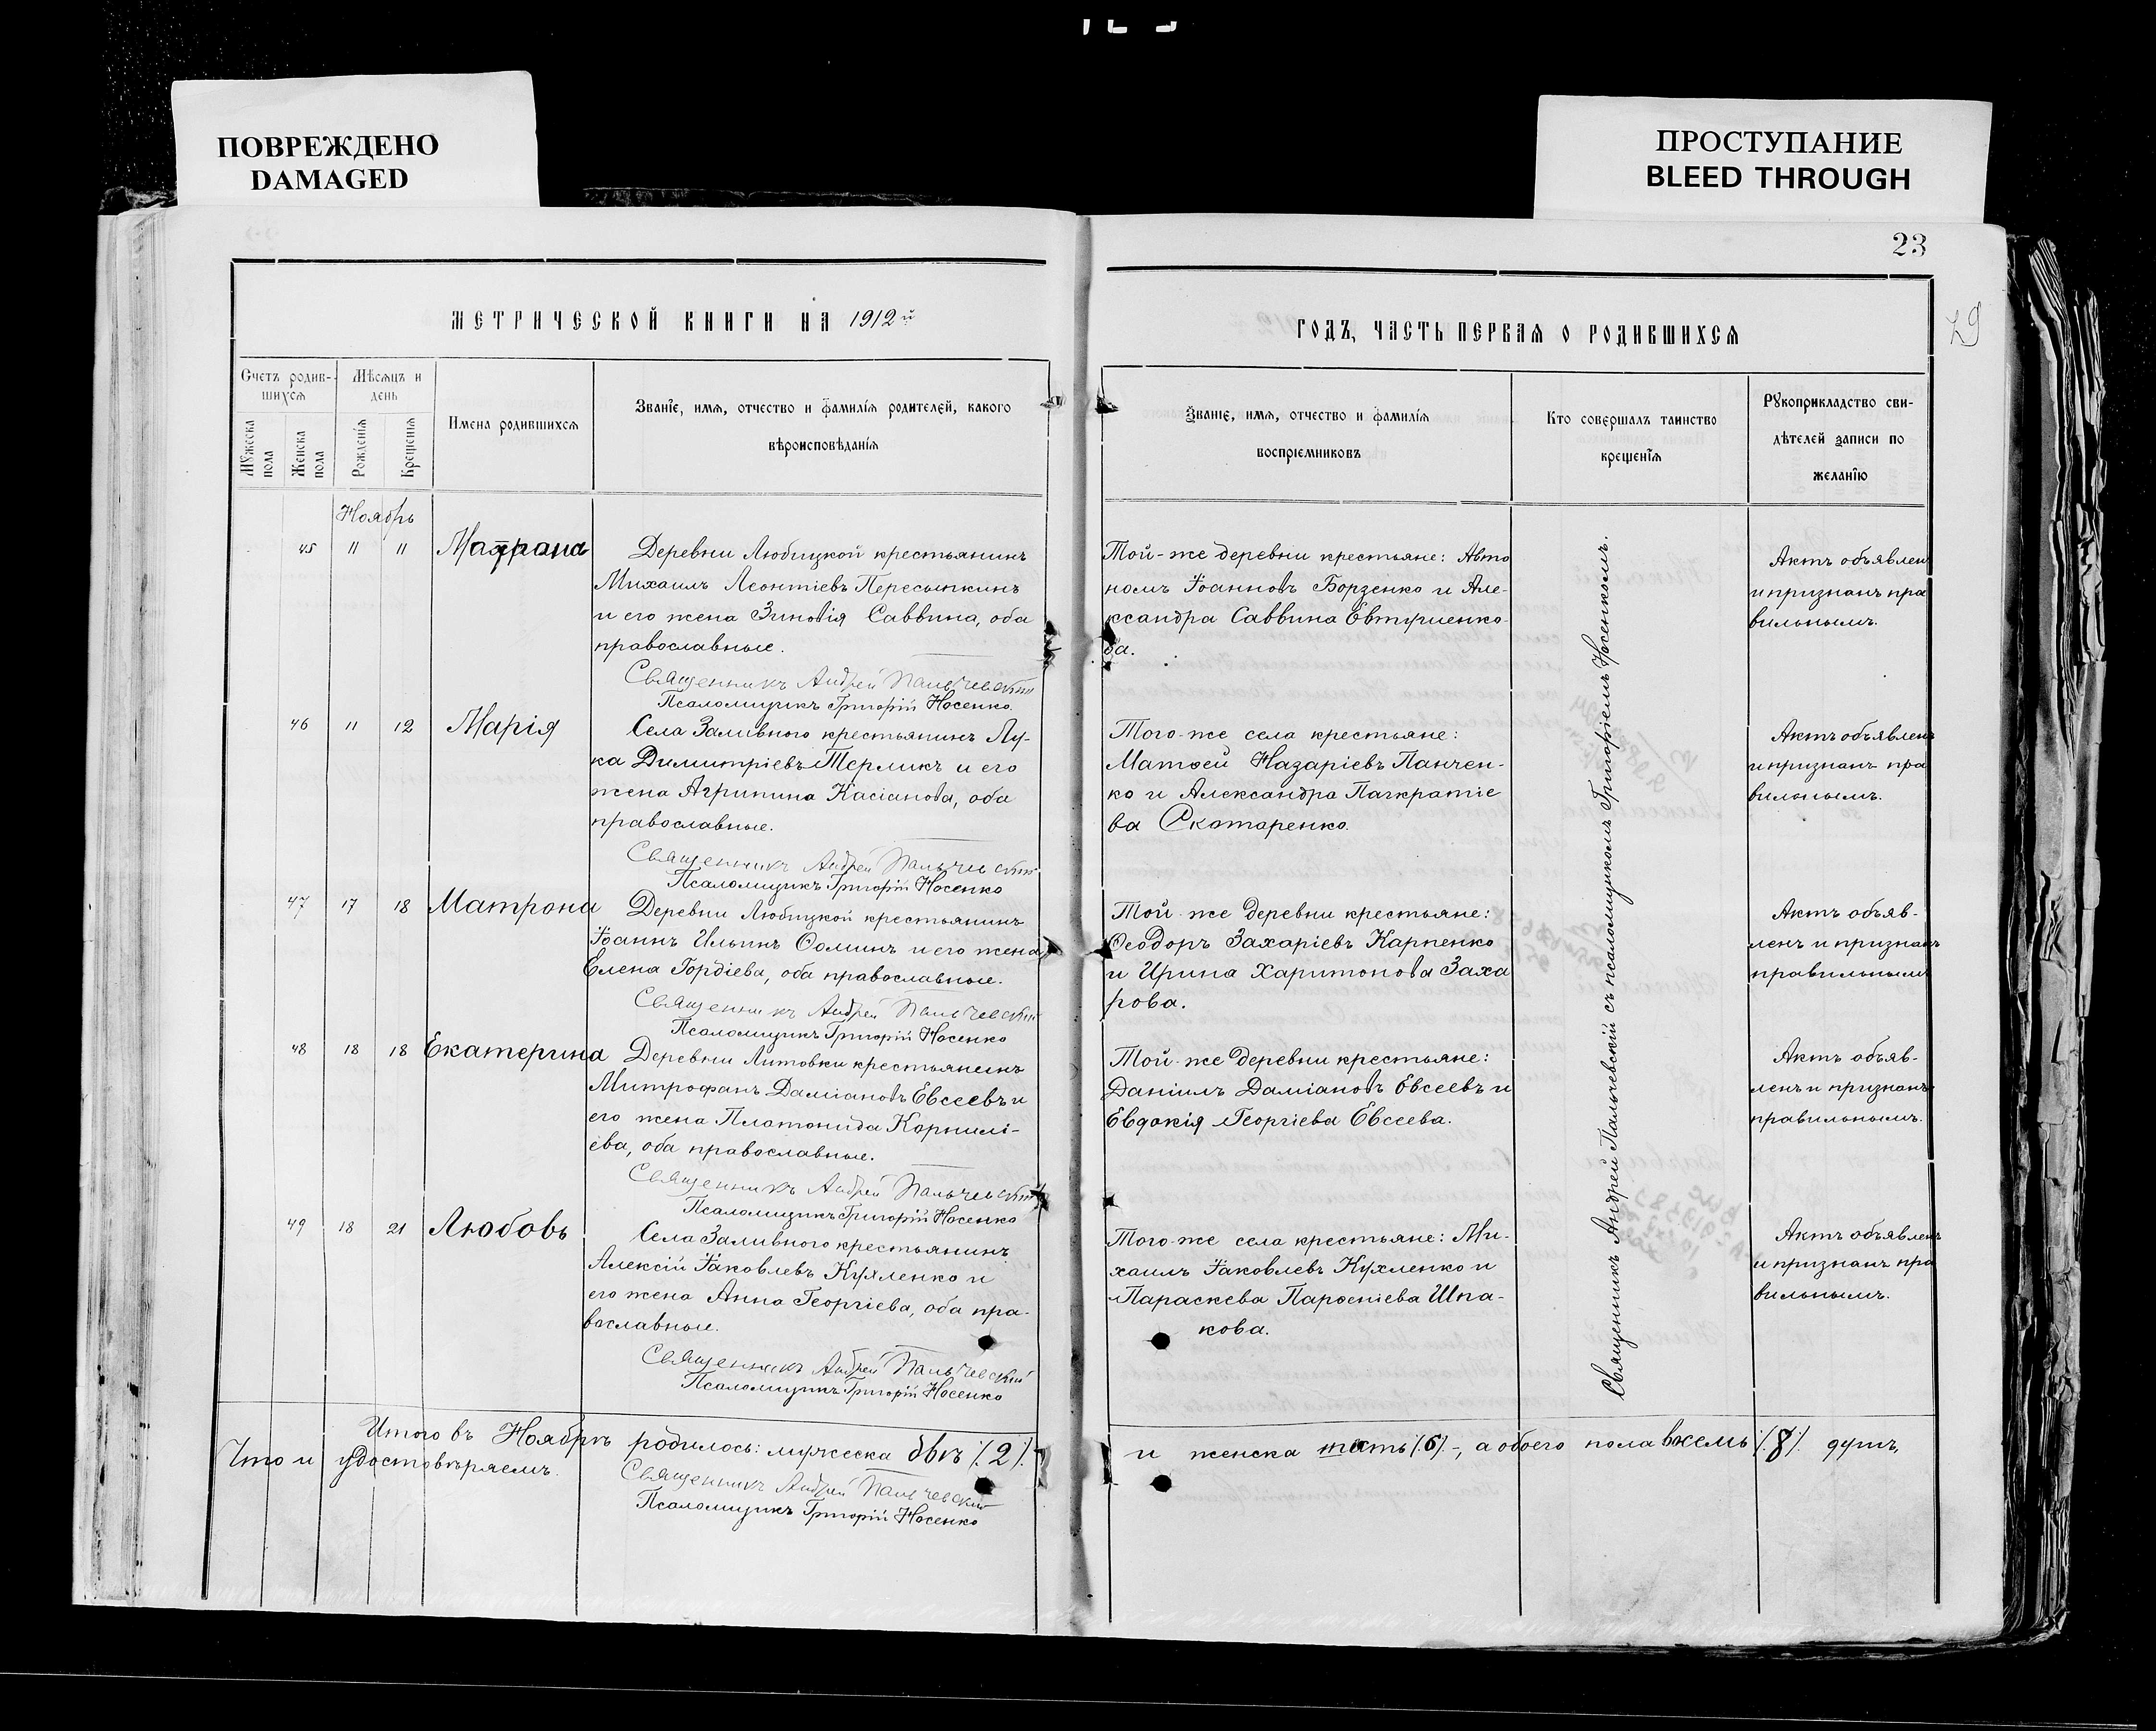 ПОВРЕЖДЕНО
DAMAGED
ПРОСТУПАНИЕ
BLEED THROUGH
23
29
МЕТРИЧЕСКОЙ КНИГИ НА 1912й
Счетъ родив-
шихся
Мѣсяцъ и
день
Мужеска пола
Женска пола
Рожденія
Крещенія
Имена родившихся
Званіе, имя, отчество и фамилія родителей, какого
вѣроисповѣданія
Ноябрь
45 11 11 Матрона
Деревни Любицкой крестьянинъ
Михаилъ Леонтіевъ Пересыпкинъ
и его жена Зиновія Саввина, оба
православные.
Священникъ Андрей Пальчевскій
Псаломщикъ Григорій Носенко
46 11 12 Марія
Села Заливного крестьянинъ Лу-
ка Димитріевъ Терликъ и его
жена Агрипина Касіанова, оба
православные.
Священникъ Андрей Пальчевскій
Псаломщикъ Григорій Носенко
47 17 18 Матрона
Деревни Любицкой крестьянинъ
Іоаннъ Ильинъ Ѳоминъ и его жена
Елена Гордіева, оба православные.
Священникъ Андрей Пальчевскій
Псаломщикъ Григорій Носенко
48 18 18 Екатерина
Деревни Литовки крестьянинъ
Митрофанъ Даміановъ Евсеевъ и
его жена Платонида Корнилі-
ева, оба православные.
Священникъ Андрей Пальчевскій
Псаломщикъ Григорій Носенко
49 18 21 Любовь
Села Заливного крестьянинъ
Алексій Іаковлевъ Кухленко и
его жена Анна Георгіева, оба пра-
вославные.
Священникъ Андрей Пальчевскій
Псаломщикъ Григорій Носенко
Итого въ Ноябрѣ родилось: мужеска двѣ /.2/.
Что и удостовѣряемъ.
Священникъ Андрей Пальчевскій
Псаломщикъ Григорій Носенко
ГОДЪ, ЧАСТЬ ПЕРВАЯ О РОДИВШИХСЯ
Званіе, имя, отчество и фамилія
воспріемниковъ
Кто совершалъ таинство
крещенія
Рукоприкладство сви-
дѣтелей записи по
желанію
Той-же деревни крестьяне: Авто
номъ Іоанновъ Борзенко и Але-
ксандра Саввина Евтушенко-
ва.
Актъ объявленъ
и признанъ пра
вильнымъ.
Того-же села крестьяне:
Матѳей Назаріевъ Панчен-
ко и Александра Панкратіе
ва Скотаренко.
Актъ объявленъ
и признанъ пра
вильнымъ.
Той-же деревни крестьяне:
Ѳеодоръ Захаріевъ Карпенко
и Ирина Харитонова Заха
рова.
Актъ объяв-
ленъ и признанъ
правильнымъ
Той-же деревни крестьяне:
Даніилъ Даміановъ Евсеевъ и
Евдокія Георгіева Евсеева.
Актъ объяв-
ленъ и признанъ
правильнымъ.
Того-же села крестьяне: Ми-
хаилъ Іаковлевъ Кухленко и
Параскева Парѳеніева Шпа-
кова.
Актъ объявленъ
и признанъ пра
вильнымъ.
Священникъ Андрей Пальчевскій съ псаломщикомъ Григоріемъ Носенкомъ.
и женска шесть /.6/. -, а обоего пола восемь /.8/. душъ,